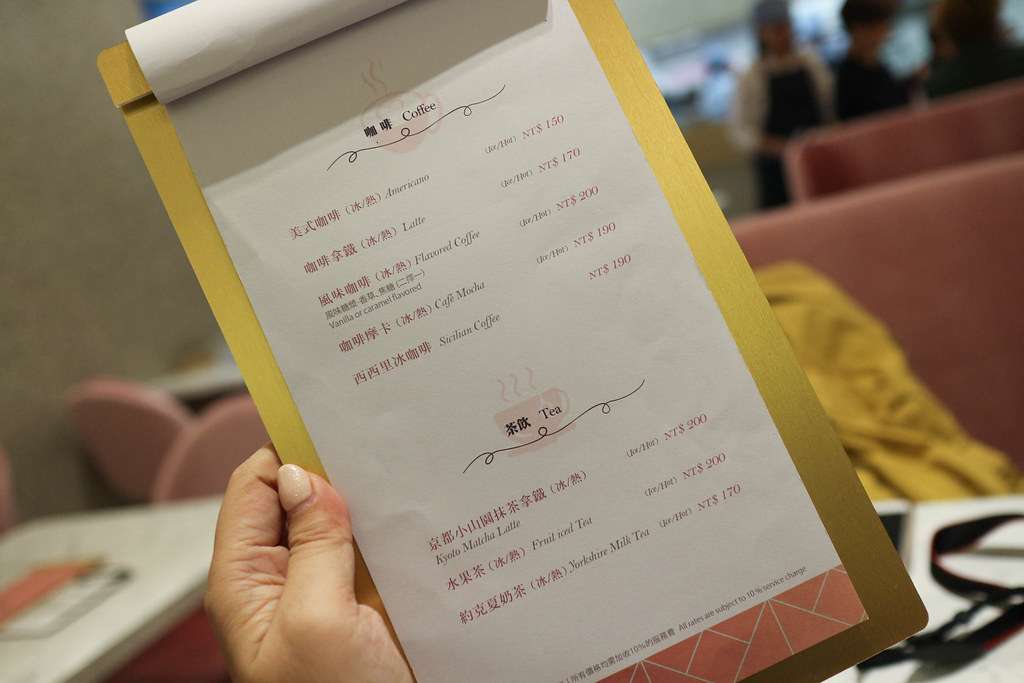 咖啡 Coffee
美式咖啡 (冰/熱) Americano (Ice/Hot) NT$ 150
咖啡拿鐵 (冰/熱) Latte (Ice/Hot) NT$ 170
風味咖啡 (冰/熱) Flavored Coffee (Ice/Hot) NT$ 200
風味糖漿:香草、焦糖 (二擇一)
Vanilla or caramel flavored
咖啡摩卡 (冰/熱) Café Mocha (Ice/Hot) NT$ 190
西西里冰咖啡 Sicilian Coffee NT$ 190
茶飲 Tea
京都小山園抹茶拿鐵 (冰/熱) (Ice/Hot) NT$ 200
Kyoto Matcha Latte
水果茶 (冰/熱) Fruit iced Tea (Ice/Hot) NT$ 200
約克夏奶茶 (冰/熱) Yorkshire Milk Tea (Ice/Hot) NT$ 170
所有價格均需加收10%的服務費 All rates are subject to 10 % service charge